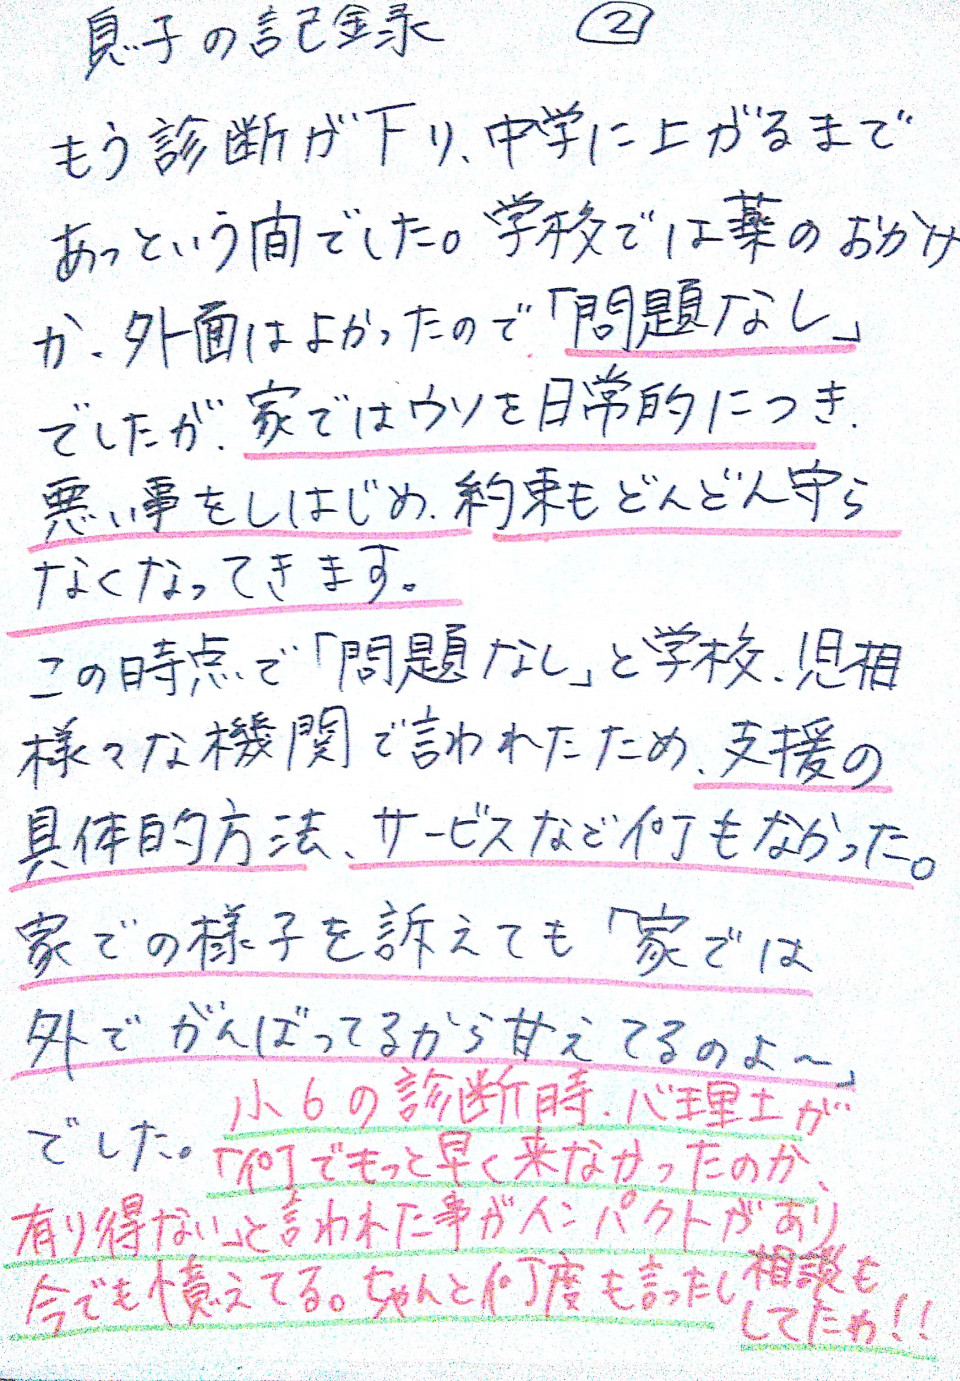 息子の記録 ②
もう診断が下り、中学に上がるまで
あっという間でした。学校では薬のおかけ
か、外面はよかったので「問題なし」
でしたが、家ではウソを日常的につき、
悪い事をしはじめ、約束もどんどん守ら
なくなってきます。
この時点で「問題なし」と学校、児相
様々な機関で言われたため、支援の
具体的方法、サービスなど何もなかった。
家での様子を訴えても「家では
外でがんばってるから甘えてるのよ〜」
でした。
小6の診断時、心理士が
「何でもっと早く来なかったのか、
有り得ない」と言われた事がインパクトがあり
今でも憶えてる。ちゃんと何度も言ったし
相談も
してたわ!!